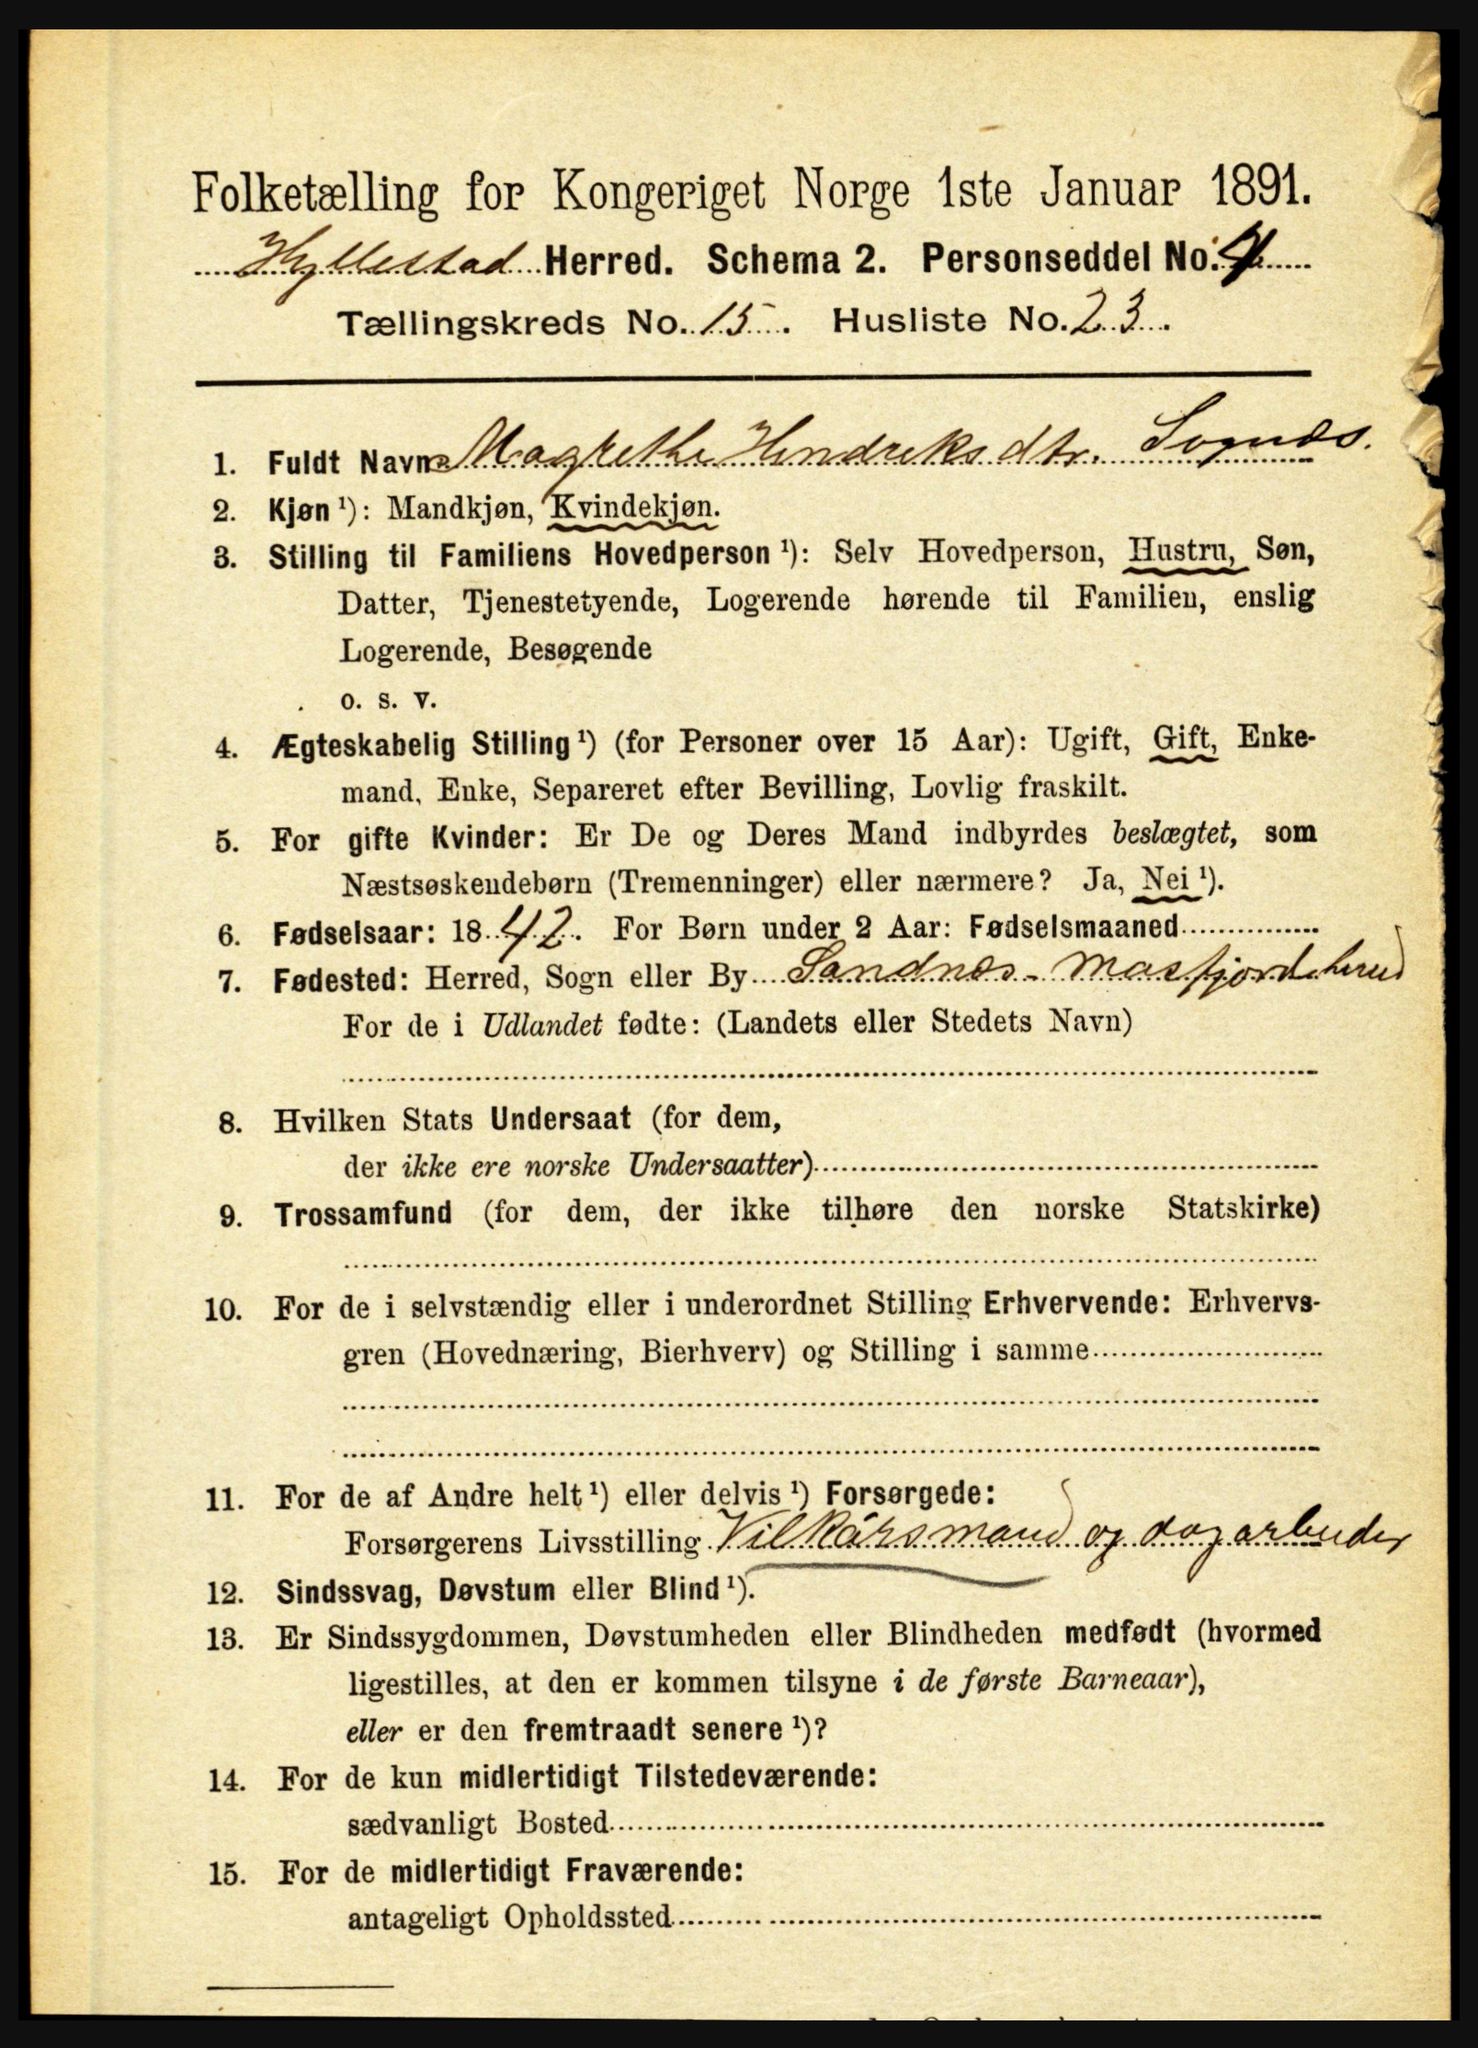 Folketælling for Kongeriget Norge 1ste Januar 1891.
Hyllestad Herred. Schema 2. Personseddel No. 4
Tællingskreds No. 15. Husliste No. 23.
1. Fuldt Navn Magrethe Hendreksdtr. Sognæs.
2. Kjøn ¹): Mandkjøn, Kvindekjøn.
3. Stilling til Familiens Hovedperson ¹): Selv Hovedperson, Hustru, Søn,
Datter, Tjenestetyende, Logerende hørende til Familien, enslig
Logerende, Besøgende
o. s. v.
4. Ægteskabelig Stilling ¹) (for Personer over 15 Aar): Ugift, Gift, Enke-
mand, Enke, Separeret efter Bevilling, Lovlig fraskilt.
5. For gifte Kvinder: Er De og Deres Mand indbyrdes beslægtet, som
Næstsøskendebørn (Tremenninger) eller nærmere? Ja, Nei ¹).
6. Fødselsaar: 1842. For Børn under 2 Aar: Fødselsmaaned
7. Fødested: Herred, Sogn eller By Sandnæs - Masfjordeherred
For de i Udlandet fødte: (Landets eller Stedets Navn)
8. Hvilken Stats Undersaat (for dem,
der ikke ere norske Undersaatter)
9. Trossamfund (for dem, der ikke tilhøre den norske Statskirke)
10. For de i selvstændig eller i underordnet Stilling Erhvervende: Erhvervs-
gren (Hovednæring, Bierhverv) og Stilling i samme
11. For de af Andre helt ¹) eller delvis ¹) Forsørgede:
Forsørgerens Livsstilling Vilkårsmand og dagarbeider
12. Sindssvag, Døvstum eller Blind ¹).
13. Er Sindssygdommen, Døvstumheden eller Blindheden medfødt (hvormed
ligestilles, at den er kommen tilsyne i de første Barneaar),
eller er den fremtraadt senere ¹)?
14. For de kun midlertidigt Tilstedeværende:
sædvanligt Bosted
15. For de midlertidigt Fraværende:
antageligt Opholdssted